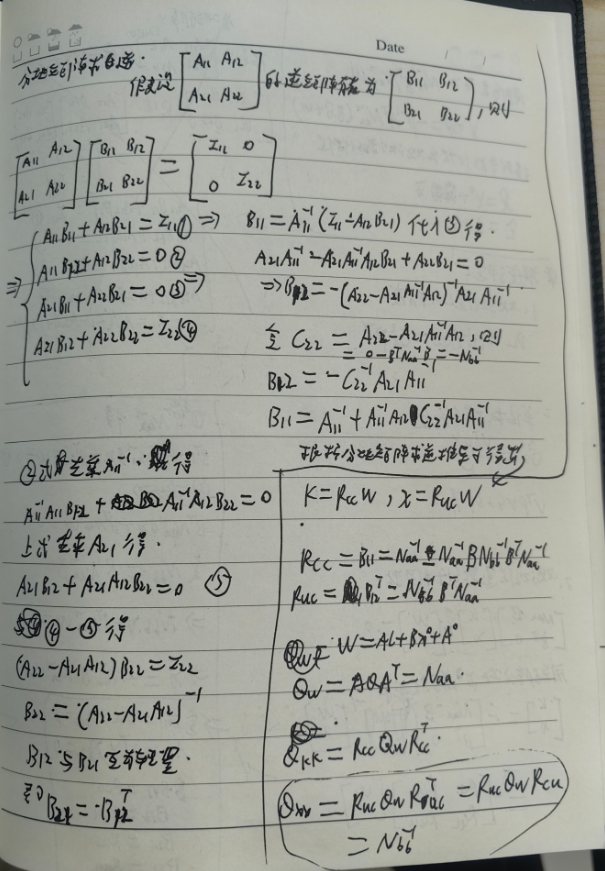 Date
分块矩阵求逆.
假设 [A11 A12; A21 A22] 的逆矩阵为 [B11 B12; B21 B22], 则
[A11 A12; A21 A22] [B11 B12; B21 B22] = [I11 0; 0 I22]
⇒ { A11B11 + A12B21 = I11 ① ⇒ B11 = A11⁻¹ (I11 - A12B21) 代入③得.
A11B12 + A12B22 = 0 ② A21A11⁻¹ - A21A11⁻¹A12B21 + A22B21 = 0
A21B11 + A22B21 = 0 ③ ⇒ ⇒ B12 = -(A22 - A21A11⁻¹A12)⁻¹A21A11⁻¹
A21B12 + A22B22 = I22 ④ 令 C22 = A22 - A21A11⁻¹A12, 则
= 0 - BᵀNaa⁻¹B = -Nbb⁻¹
B12 = -C22⁻¹A21A11⁻¹
B11 = A11⁻¹ + A11⁻¹A12C22⁻¹A21A11⁻¹
根据分块矩阵求逆
②式左乘A11⁻¹, 得
A11⁻¹A11B12 + A11⁻¹A12B22 = 0
上式左乘A21得.
A21B12 + A21A12B22 = 0 ⑤
④-⑤得
(A22 - A21A12)B22 = I22
B22 = (A22 - A21A12)⁻¹
B12与B21互为转置.
即 B21 = B12ᵀ
K = RccW, x = RucW
Rcc = B11 = Naa⁻¹ - Naa⁻¹BNbb⁻¹BᵀNaa⁻¹
Ruc = B12ᵀ = Nbb⁻¹BᵀNaa⁻¹
W = AL + Bx⁰ + A⁰
Qw = AQAᵀ = Naa.
QKK = Rcc Qw Rccᵀ.
Qxx = Ruc Qw Rucᵀ = Ruc Qw Rcu
= Nbb⁻¹